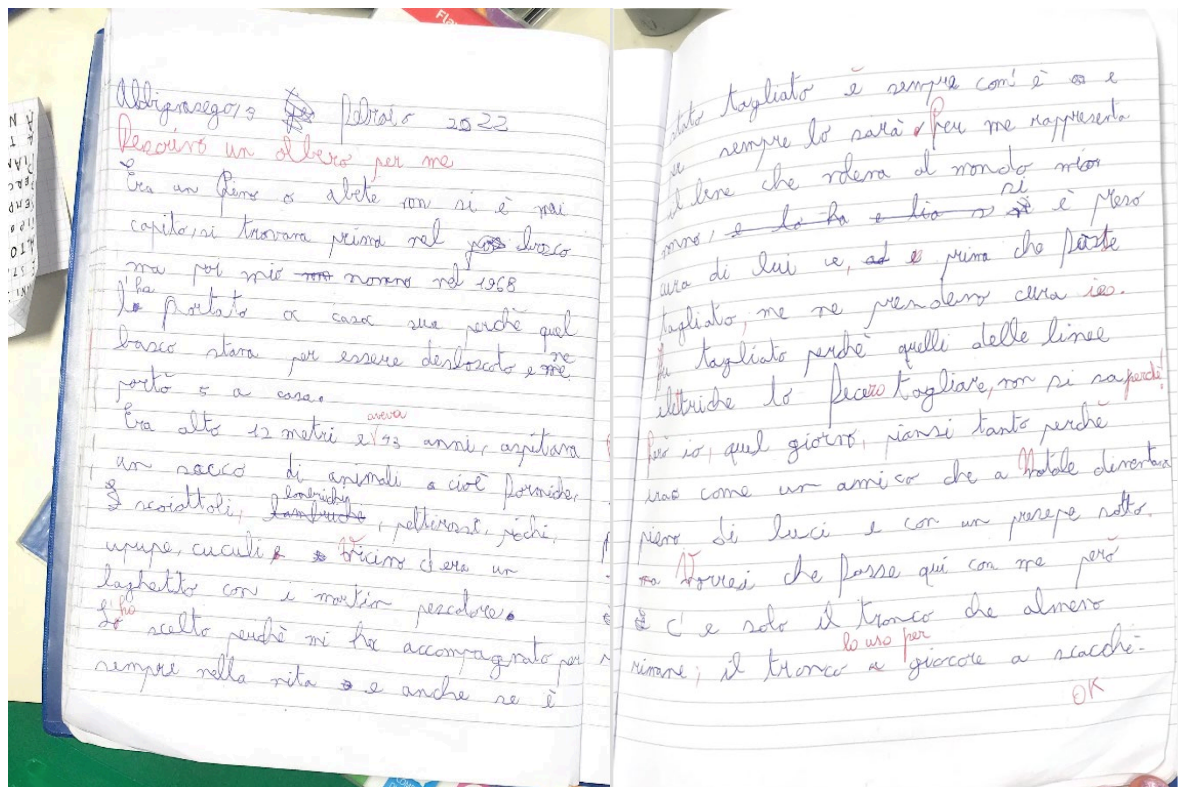 Albignasego, 3 febbraio 2022
Descrivo un albero per me
Era un pino o abete non si è mai
capito, si trovava prima nel bosco
ma poi mio nonno nel 1968
l'ha portato a casa sua perchè quel
bosco stava per essere disboscato e ne
portò 5 a casa.
Era alto 12 metri e aveva 93 anni, ospitava
un sacco di animali cioè formiche,
scoiattoli, lombrichi, pettirossi, picchi,
upupe, cuculi. Vicino c'era un
laghetto con i martin pescatore.
L'ho scelto perchè mi ha accompagnato per
sempre nella vita e anche se è
stato tagliato è sempre com'è e
per sempre lo sarà. Per me rappresenta
il bene che voleva al mondo mio
nonno, si è preso
cura di lui e, prima che fosse
tagliato, me ne prendevo cura io.
Fu tagliato perchè quelli delle linee
elettriche lo fecero tagliare, non si sa perchè!
Però io, quel giorno, piansi tanto perchè
era come un amico che a Natale diventava
pieno di luci e con un presepe sotto.
Vorrei che fosse qui con me però
c'e solo il tronco che almeno
rimane; il tronco lo uso per giocare a scacchi.
OK